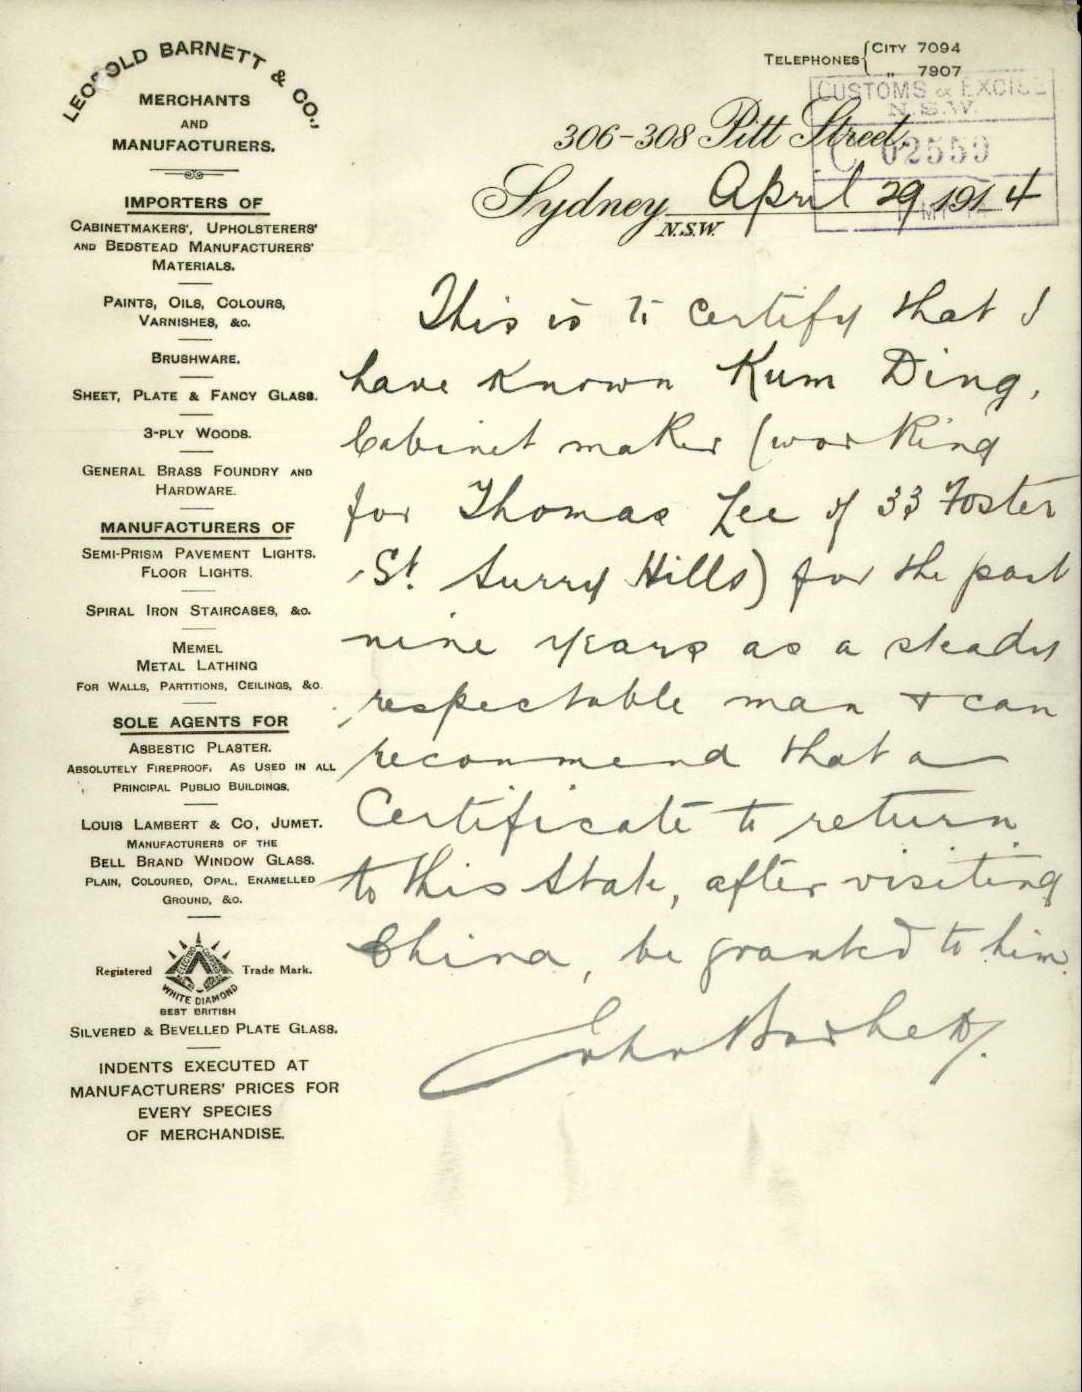 LEOPOLD BARNETT & CO.,
MERCHANTS
AND
MANUFACTURERS.
IMPORTERS OF
CABINETMAKERS', UPHOLSTERERS'
AND BEDSTEAD MANUFACTURERS'
MATERIALS.
PAINTS, OILS, COLOURS,
VARNISHES, &c.
BRUSHWARE.
SHEET, PLATE & FANCY GLASS.
3-PLY WOODS.
GENERAL BRASS FOUNDRY AND
HARDWARE.
MANUFACTURERS OF
SEMI-PRISM PAVEMENT LIGHTS.
FLOOR LIGHTS.
SPIRAL IRON STAIRCASES, &c.
MEMEL
METAL LATHING
FOR WALLS, PARTITIONS, CEILINGS, &c.
SOLE AGENTS FOR
ASBESTIC PLASTER.
ABSOLUTELY FIREPROOF. AS USED IN ALL
PRINCIPAL PUBLIC BUILDINGS.
LOUIS LAMBERT & CO, JUMET.
MANUFACTURERS OF THE
BELL BRAND WINDOW GLASS.
PLAIN, COLOURED, OPAL, ENAMELLED
GROUND, &c.
Registered Trade Mark.
WHITE DIAMOND
BEST BRITISH
SILVERED & BEVELLED PLATE GLASS.
INDENTS EXECUTED AT
MANUFACTURERS' PRICES FOR
EVERY SPECIES
OF MERCHANDISE.
TELEPHONES { CITY 7094
" 7907
CUSTOMS & EXCISE
N.S.W.
C 02559
306-308 Pitt Street,
Sydney April 29 1914
N.S.W.
This is to certify that I
have known Kum Ding,
Cabinet maker (working
for Thomas Lee of 33 Foster
St. Surry Hills) for the past
nine years as a steady
respectable man & can
recommend that a
Certificate to return
to this State, after visiting
China, be granted to him.
John Barnett